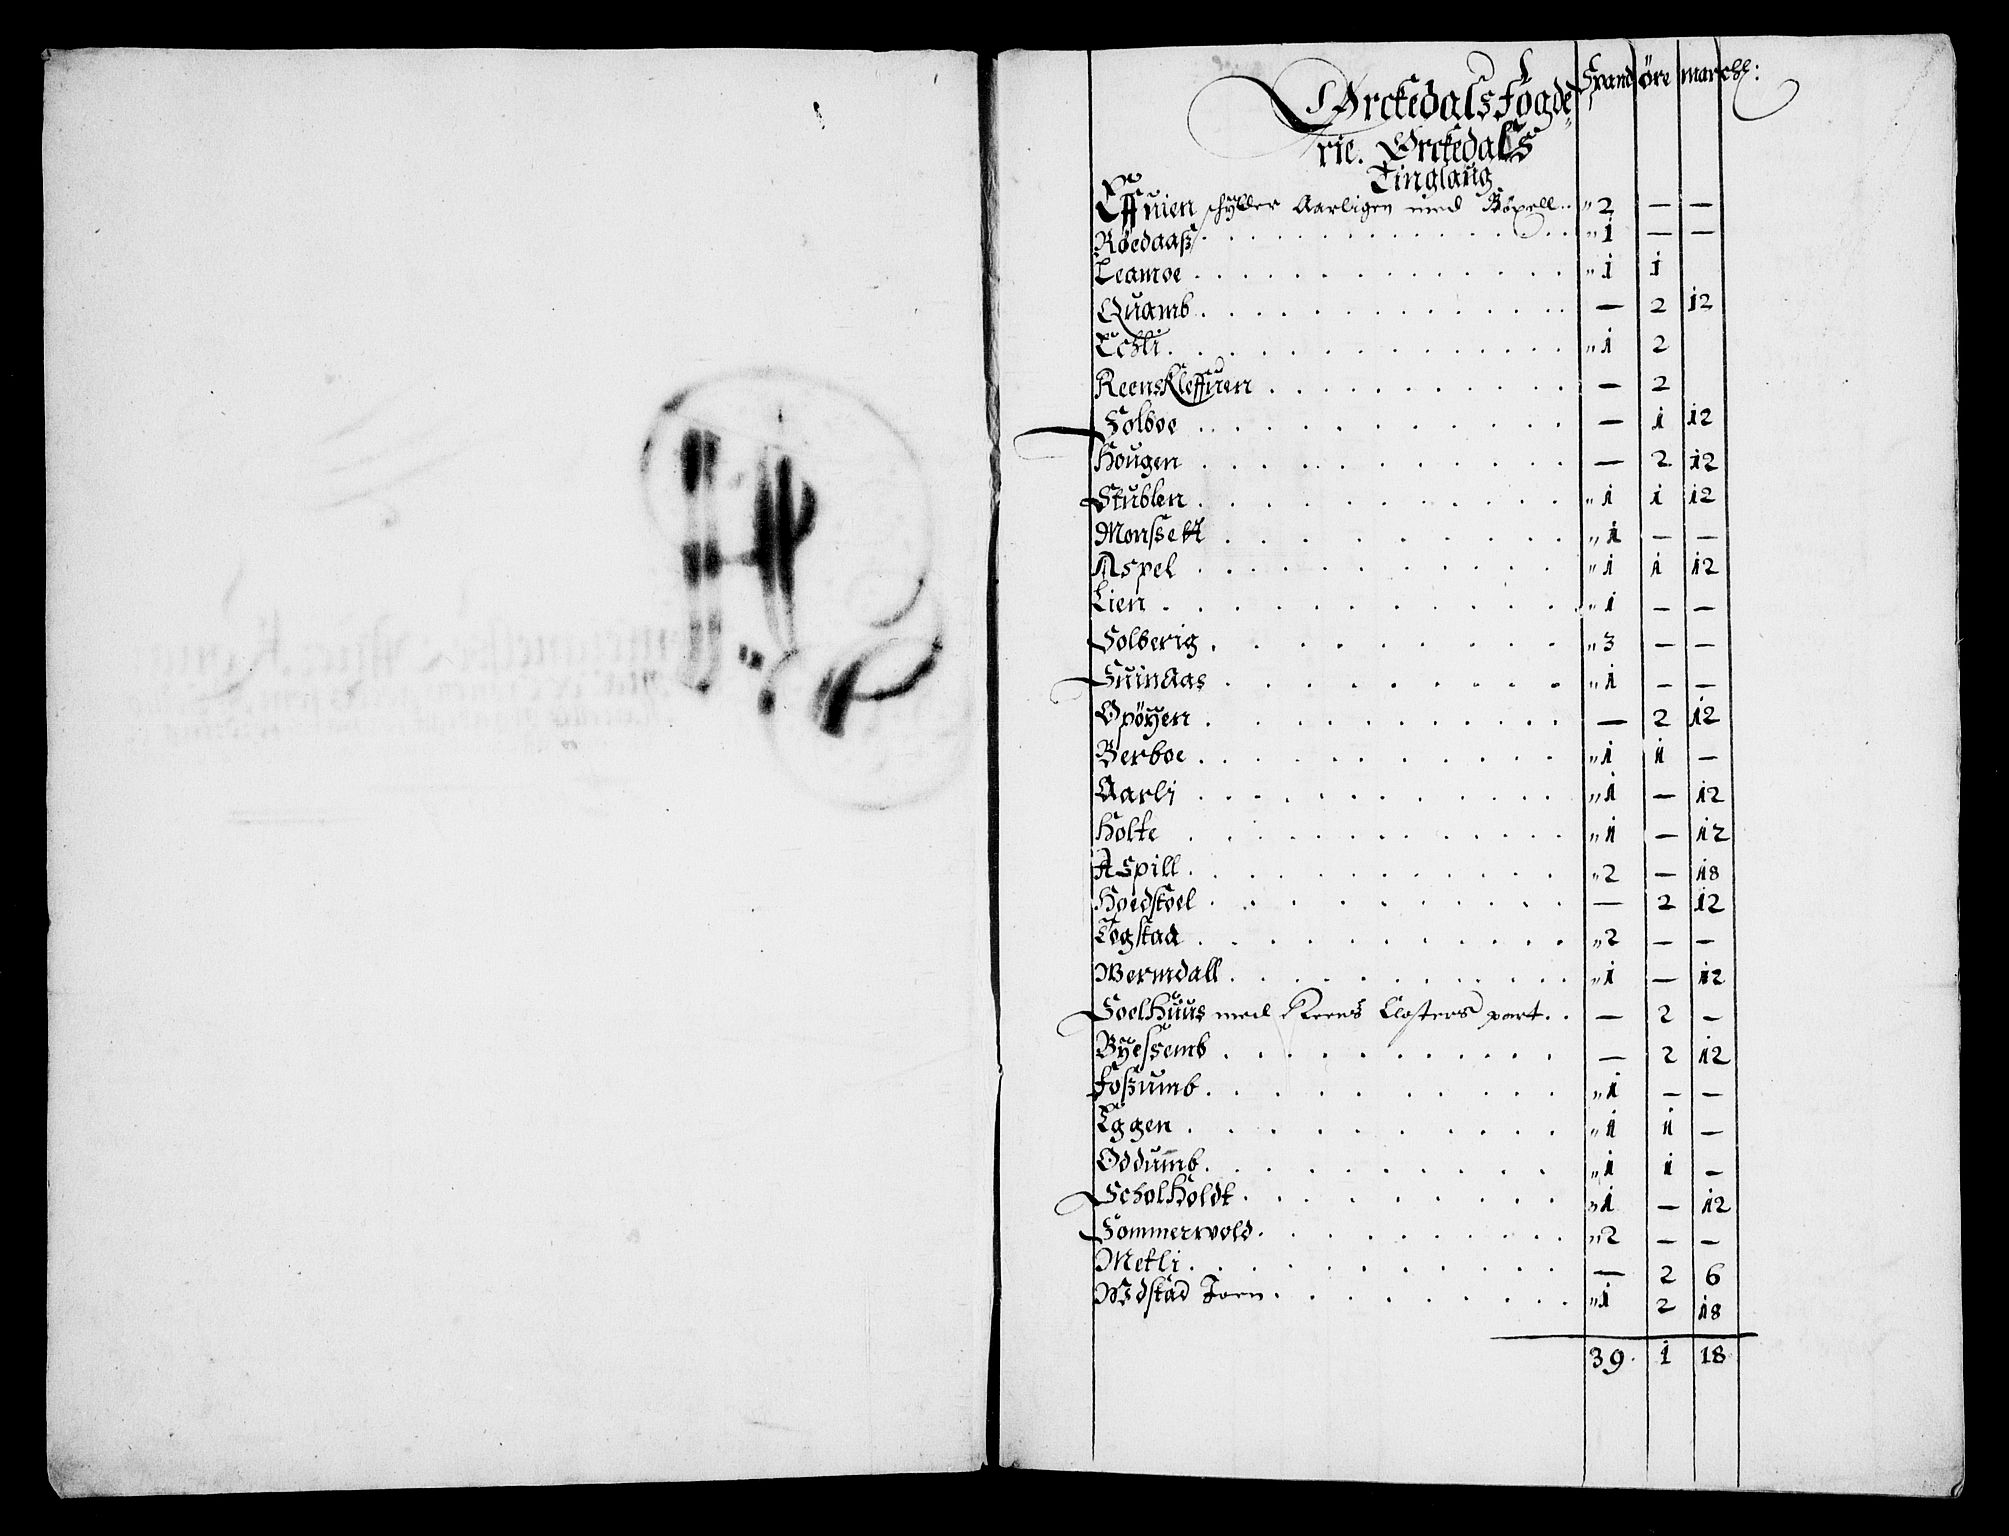 Spand öre marchℓ:
Ørckedals Fogde-
rie. Ørckedals
Tinglaug
Effuien schylder Aarligen med Böxell .. " 2 — —
Röedaaß . . . " 1 — —
Leamoe . . . " 1 1
Quamb . . . — 2 12
Echli . . . " 1 2
Reenskleffuen . . . — 2
Solboe . . . — 1 12
Hougen . . . — 2 12
Stublen . . . " 1 1 12
Monssett . . . " 1 — —
Aspel . . . " 1 1 12
Lien . . . " 1 — —
Solberig . . . " 3 — —
Suinaas . . . " 1 — —
Opöyen . . . — 2 12
Berboe . . . " 1 1 —
Aarli . . . " 1 — 12
Holte . . . " 1 — 12
Aspill . . . " 2 — 18
Hoedstoel . . . — 2 12
Togstad . . . " 2 — —
Wermdall . . . " 1 — 12
Soelhuus med Reens Closters part . . — 2 —
Byessemb . . . — 2 12
Foßumb . . . " 1 — —
Eggen . . . " 1 1 —
Oddumb . . . " 1 1 —
Scholholdt . . . " 1 — 12
Sommervold . . . " 2 — —
Metli . . . — 2 6
Wdstad . . . " 1 2 18
39 1 18